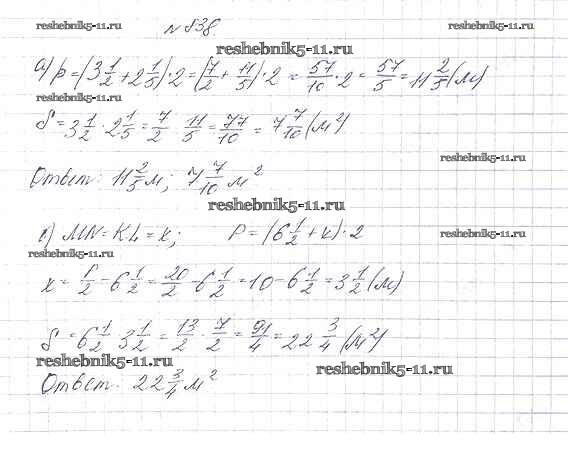 reshebnik5-11.ru № 838. reshebnik5-11.ru
reshebnik5-11.ru
а) p = (3 1/2 + 2 1/5) · 2 = (7/2 + 11/5) · 2 = 57/10 · 2 = 57/5 = 11 2/5 (м)
reshebnik5-11.ru
S = 3 1/2 · 2 1/5 = 7/2 · 11/5 = 77/10 = 7 7/10 (м²)
reshebnik5-11.ru
Ответ: 11 2/5 м; 7 7/10 м²
reshebnik5-11.ru
MN = KL = x; P = (6 1/2 + x) · 2
reshebnik5-11.ru
reshebnik5-11.ru
x = P/2 - 6 1/2 = 20/2 - 6 1/2 = 10 - 6 1/2 = 3 1/2 (м)
S = 6 1/2 · 3 1/2 = 13/2 · 7/2 = 91/4 = 22 3/4 (м²)
reshebnik5-11.ru
reshebnik5-11.ru
Ответ: 22 3/4 м²